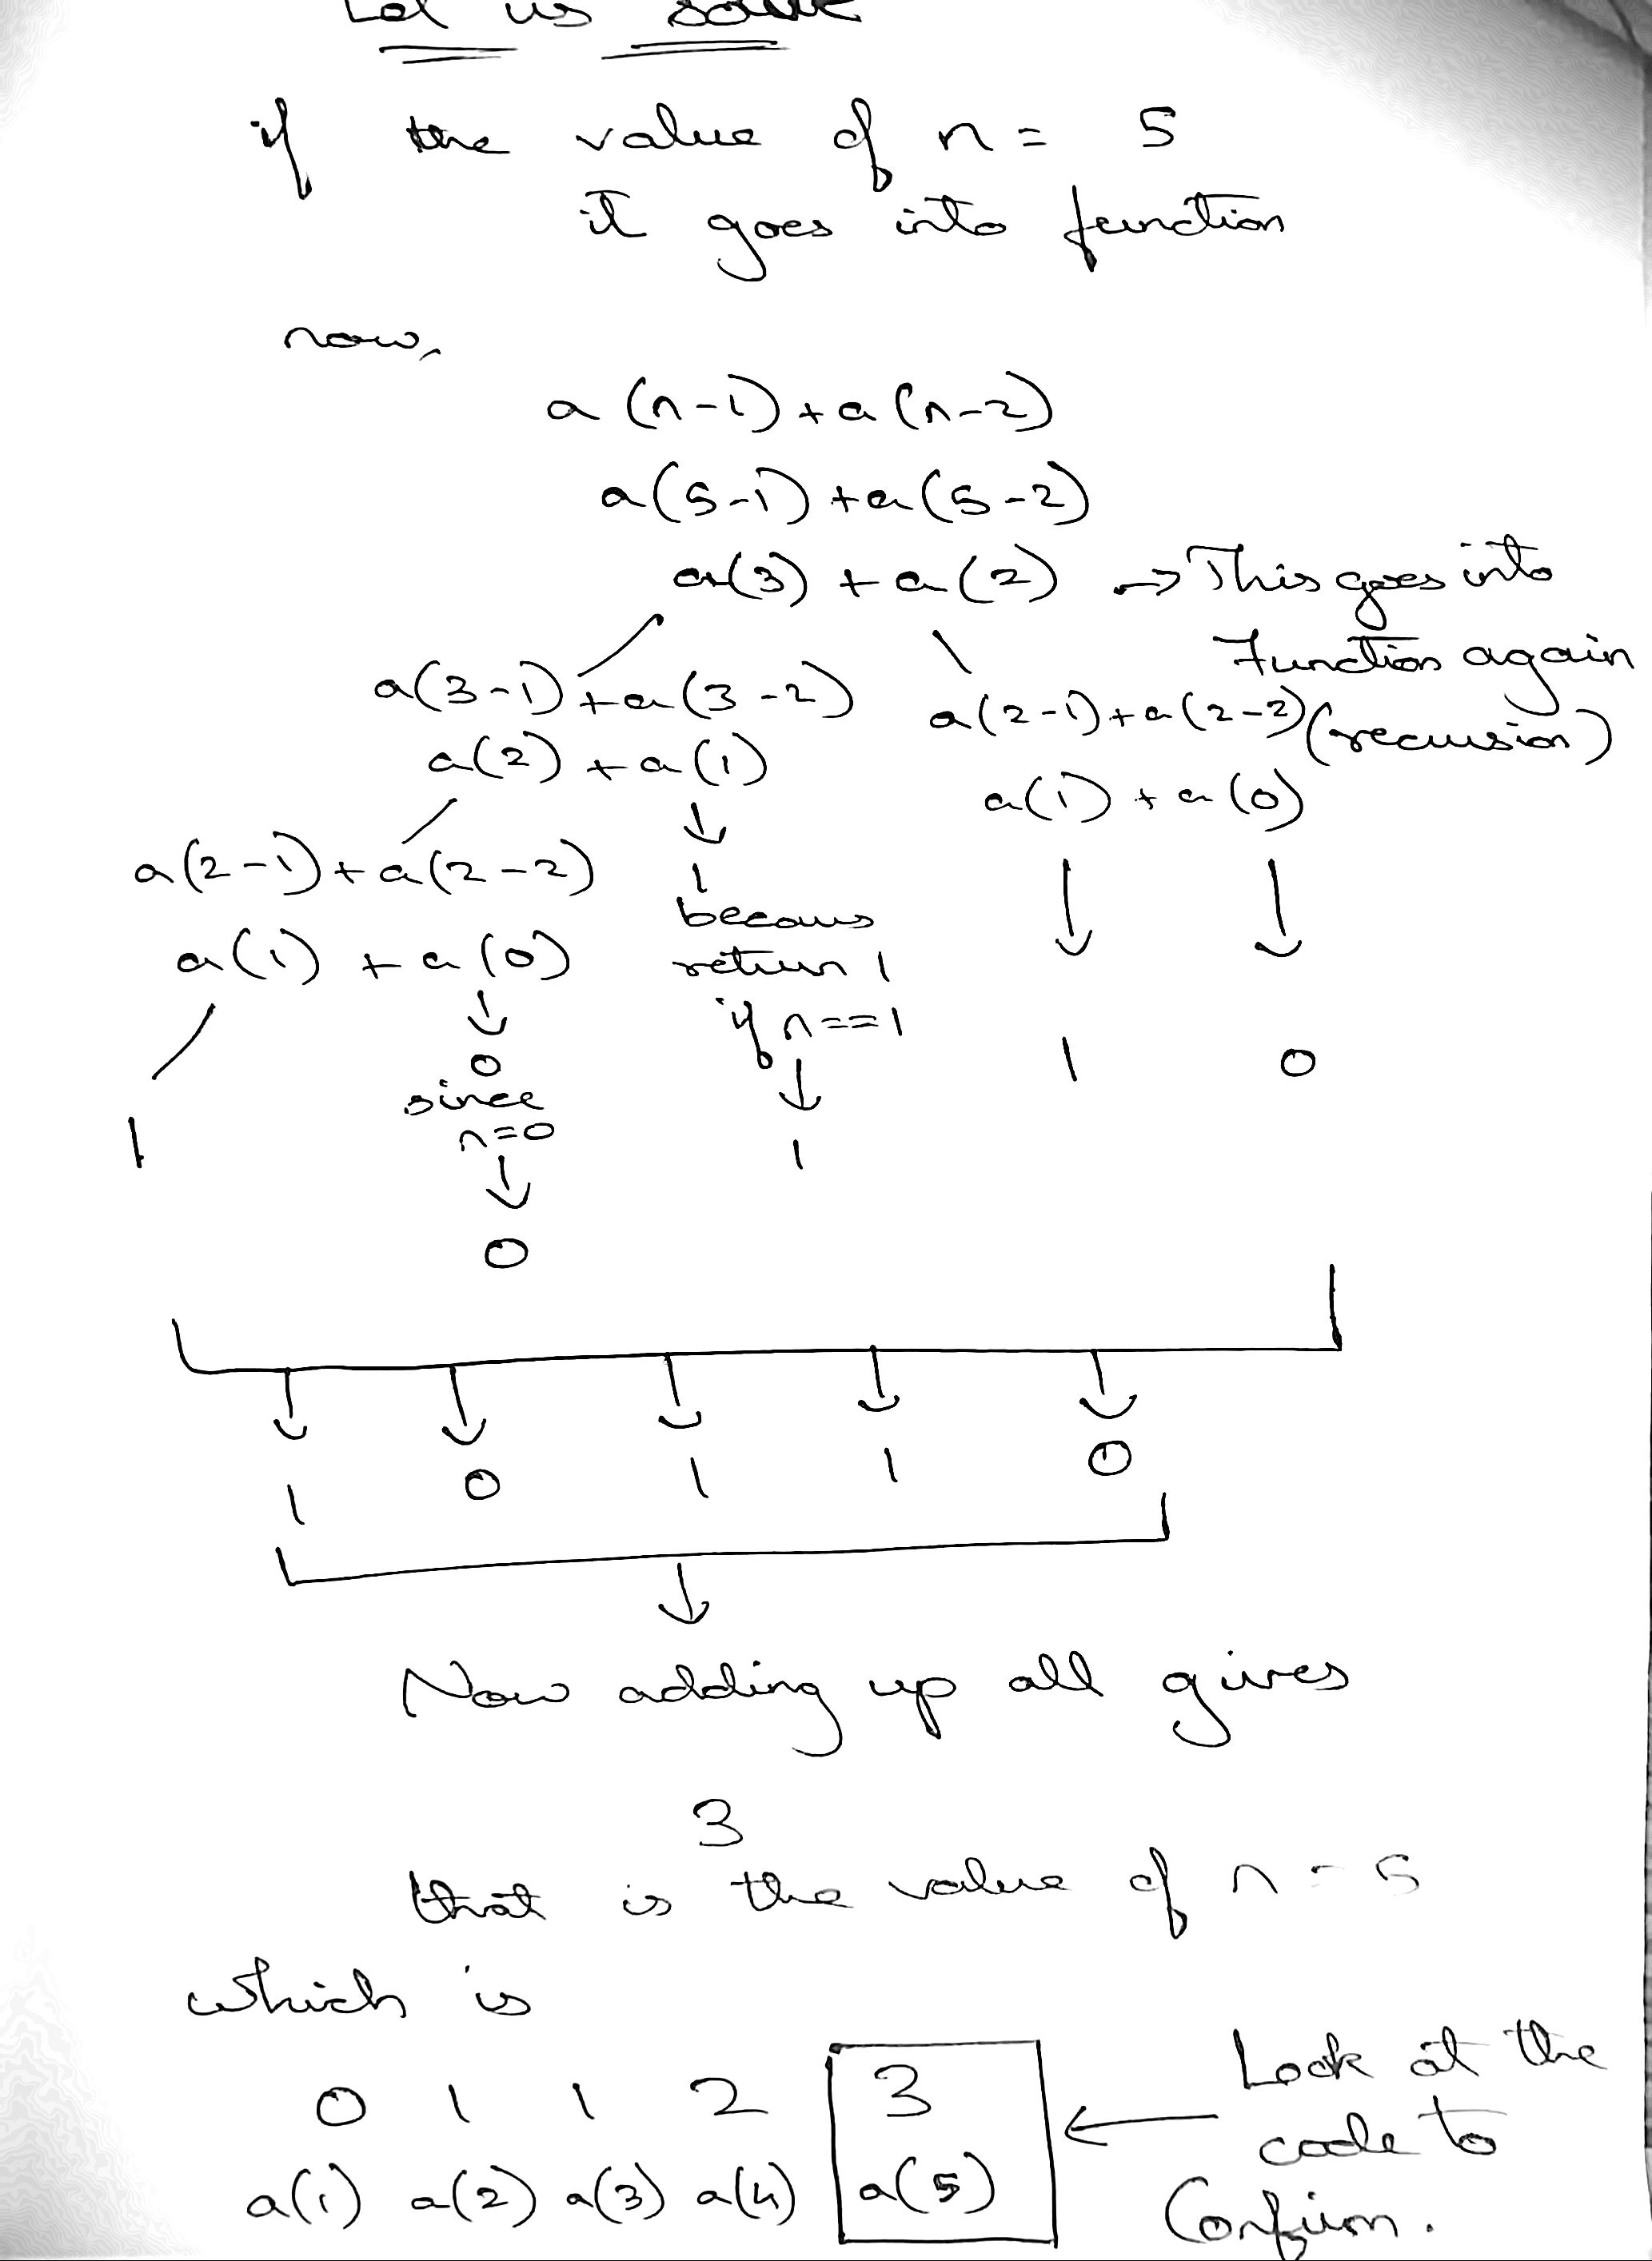 Let us solve
if the value of n = 5
it goes into function
now,
a (n-1) + a (n-2)
a(5-1) + a(5-2)
a(3) + a(2) → This goes into
Function again
(recursion)
a(3-1) + a(3-2) a(2-1) + a(2-2)
a(2) + a(1) a(1) + a(0)
a(2-1) + a(2-2) 1
becaus
a(1) + a(0) return 1
if n==1
0 1 0
since
n=0
1 1
0
1 0 1 1 0
Now adding up all gives
3
that is the value of n = 5
which is
0 1 1 2 3
a(1) a(2) a(3) a(4) a(5)
Look at the
code to
Confirm.